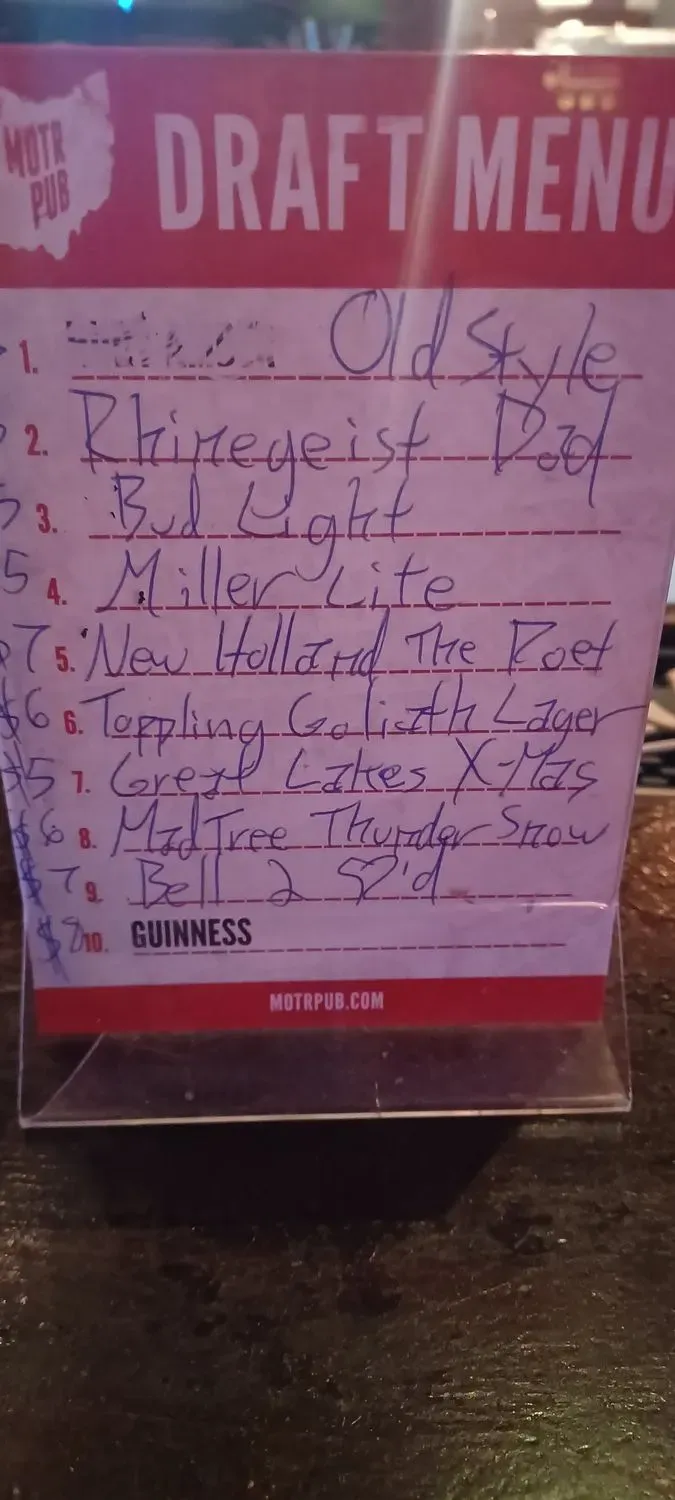 MOTR PUB
DRAFT MENU
1. Old Style
2. Rhinegeist Dad
3. Bud Light
5 4. Miller Lite
7 5. New Holland The Poet
$6 6. Toppling Goliath Lager
$5 7. Great Lakes X-Mas
$6 8. MadTree Thunder Snow
$7 9. Bell 2
$8 10. GUINNESS
MOTRPUB.COM